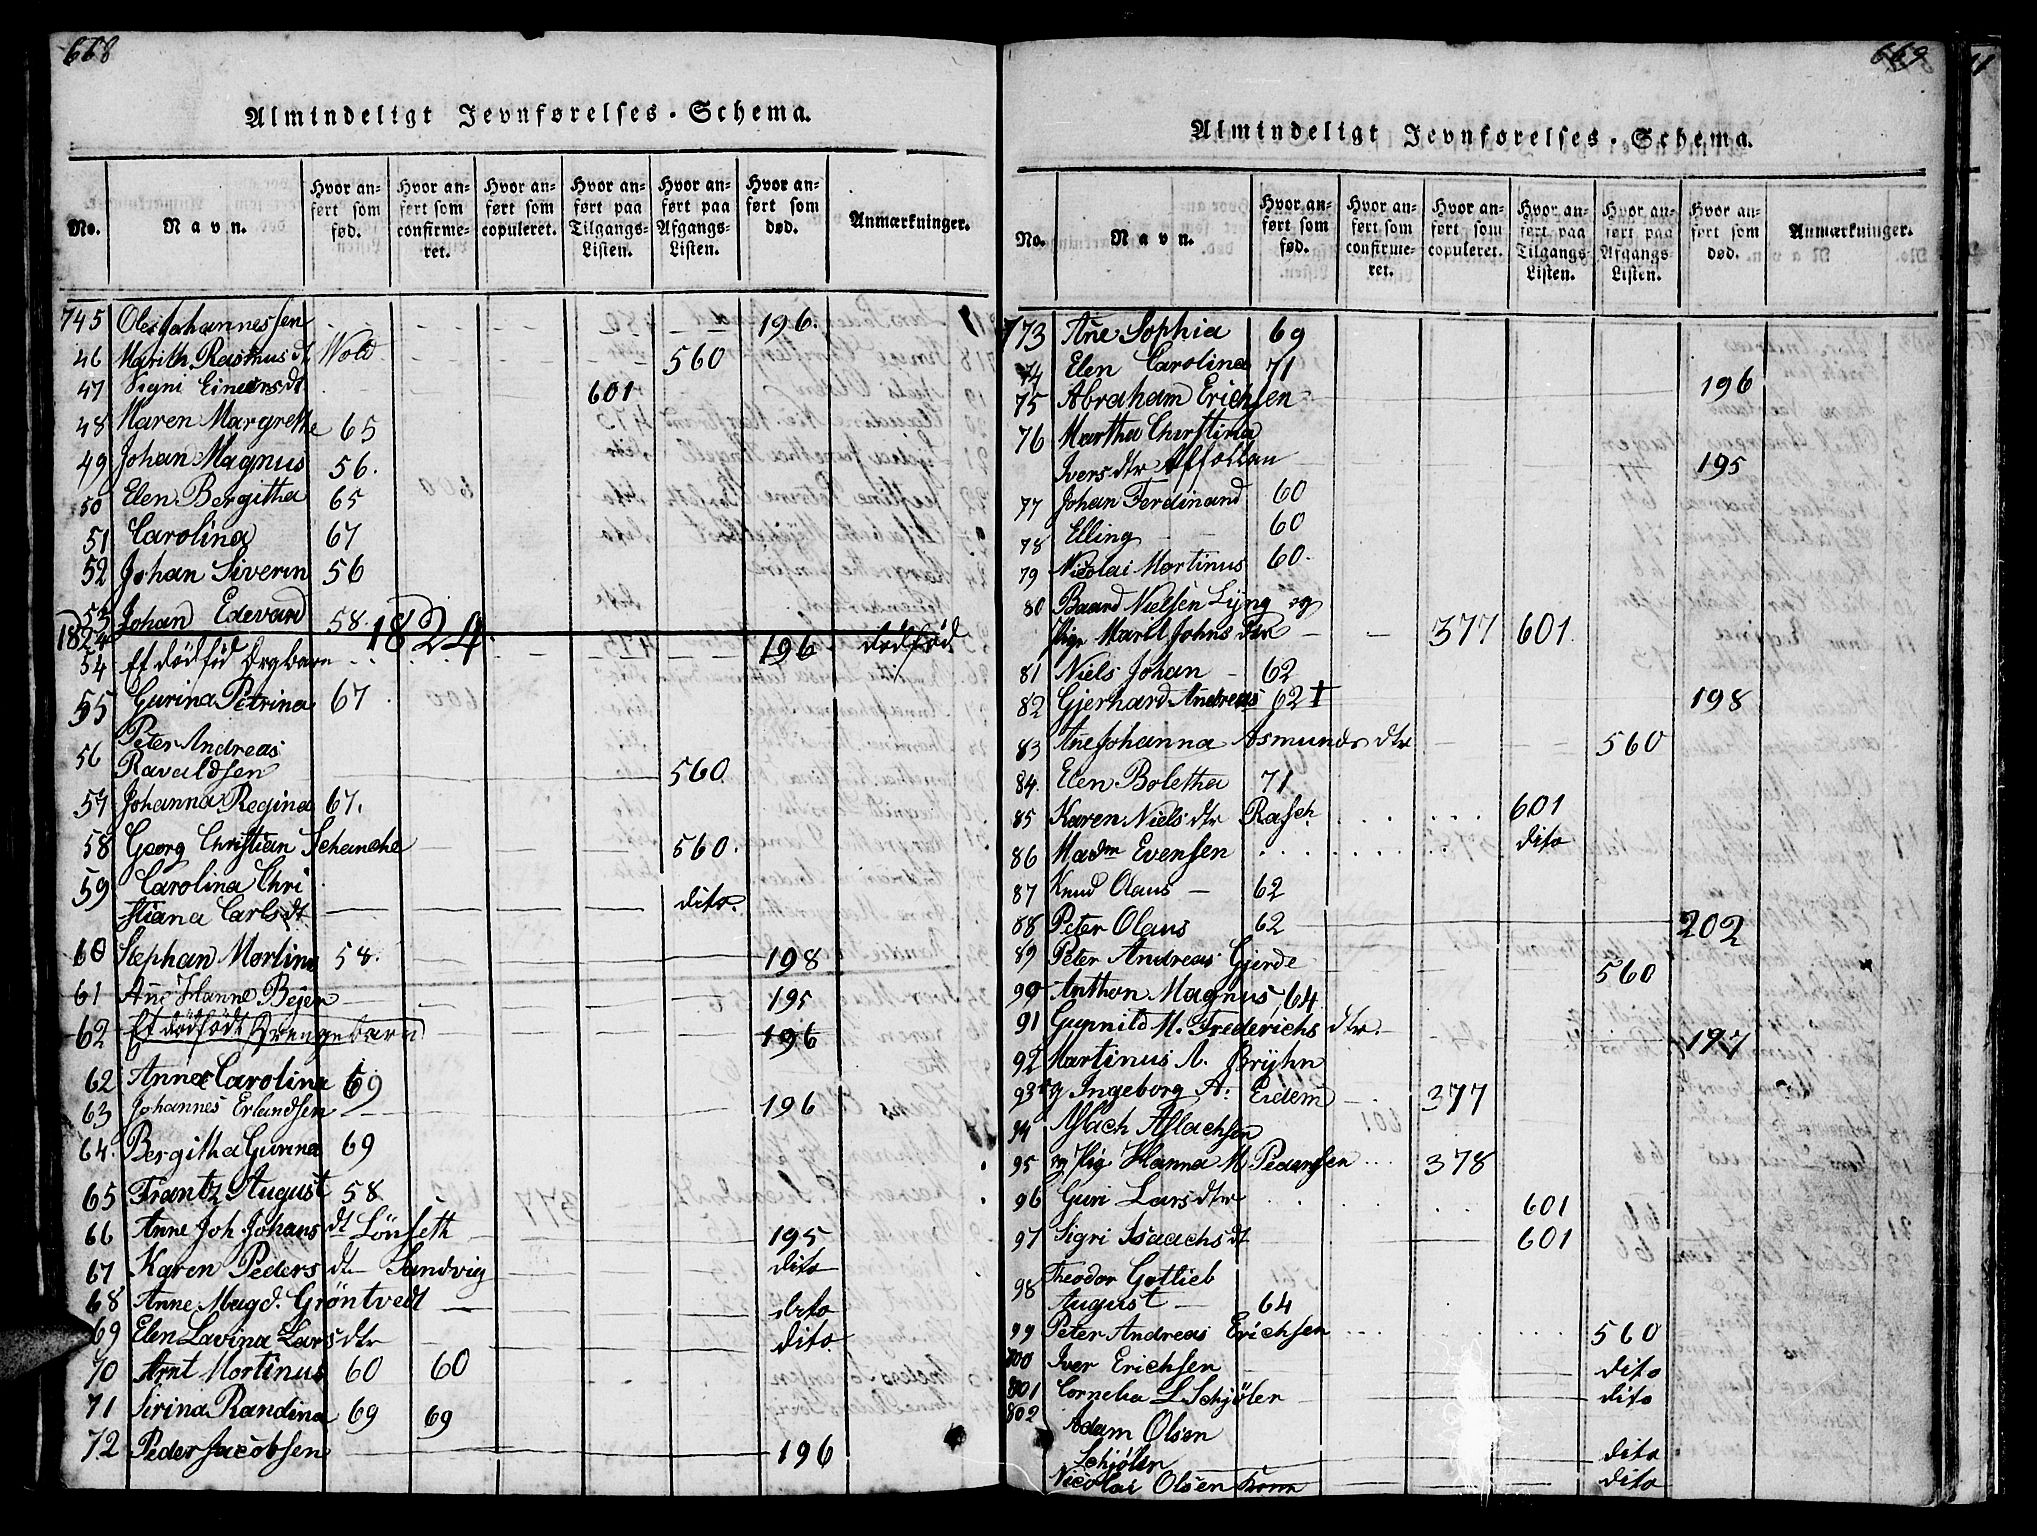 668
Almindeligt Jevnførelses-Schema.
No. Navn. Hvor anført som fød. Hvor anført som confirmeret. Hvor anført som copuleret. Hvor anført paa Tilgangs-Listen. Hvor anført paa Afgangs-Listen. Hvor anført som død. Anmærkninger.
745 Ole Johannessen 196.
46 Marith Rasmus dt Wold 560
47 Signi Einersdt 601
48 Maren Margrethe 65
49 Johan Magnus 56.
50 Elen Bergitha 65
51 Carolina 67
52 Johan Siverin 56
53 Johan Edevard 58.
1824 1824.
54 Et dödföd Drgbarn 196. dødfød
55 Gurina Petrina 67.
56 Peter Andreas
Ravaldsen 560.
57 Johanna Regina 67.
58 Georg Christian Schanche 560.
59 Carolina Chri
stiana Carlsdt dito.
60 Stephan Martinu 58. 198
61 Ane Hanne Bejer 195
62 Et dödfödt Drengebarn 196
62 Anne Carolina 69
63 Johannes Erlandsen 196
64. Bergitha Gurina 69
65 Frantz August 58
66 Anne Joh Johans dt Lönseth 195
67 Karen Peders dtr Sandvig dito
68 Anne Magd. Gröntvedt dito
69 Elen Lavina Lars dtr dito.
70 Arnt Martinus 60 60
71 Sirina Randina 69 69
72 Peder Jacobsen 196
669
Almindeligt Jevnførelses-Schema.
No. Navn. Hvor anført som fød. Hvor anført som confirmeret. Hvor anført som copuleret. Hvor anført paa Tilgangs-Listen. Hvor anført paa Afgangs-Listen. Hvor anført som død. Anmærkninger.
773 Ane Sophia 69
74 Elen Carolina 71
75 Abraham Erichsen 196
76 Martha Christina
Ivers dtr 195
77 Johan Ferdinand 60
78 Elling 60
79 Nicolai Martinus 60.
80 Baard Nielsen Lyng og
Pige Marit Johns Dtr 377 601.
81 Niels Johan 62
82 Gjerhard Andreas 62 † 198
83 Ane Johanna Asmunds dtr 560
84. Elen Boletha 71
85 Karen Niels dtr Rasch 601
86 Madm Evensen dito
87 Knud Olaus 62
88 Peter Olaus 62 202
89 Peter Andreas Gjerde 560
90 Anthon Magnus 64
91 Gunnild M. Frederichs dtr. 197
92 Martinus A. Bryhn
93 og Ingeborg A: Eidem 377
94 Aslach Aslachsen
95 og Pig Hanna M Pedersen 378
96 Guri Lars dtr 601
97 Sigri Isaachs dt 601
98 Theodor Gotlieb
August 64
99 Peter Andreas Erichsen 560
800 Iver Erichsen dito
801 Cornelia L Schjöler dito
802 Adam Olsen
Schjöler dito
Nicolai Olsen dito